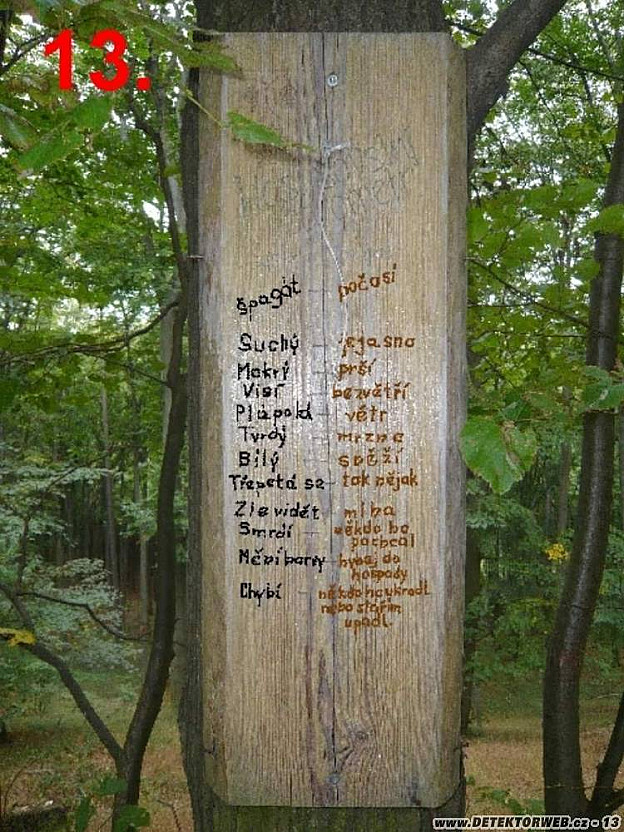 13.
špagát - počasí
Suchý - je jasno
Mokrý - prší
Visí - bezvětří
Plápolá - větr
Tvrdý - mrzne
Bílý - sněží
Třepetá se - tak nějak
Zle vidět - mlha
Smrdí - někdo ho
pochcal
Mění barvy - hybej do
hospody
Chybí - někdo ho ukradl
nebo stářím
upadl.
WWW.DETEKTORWEB.cz - 13